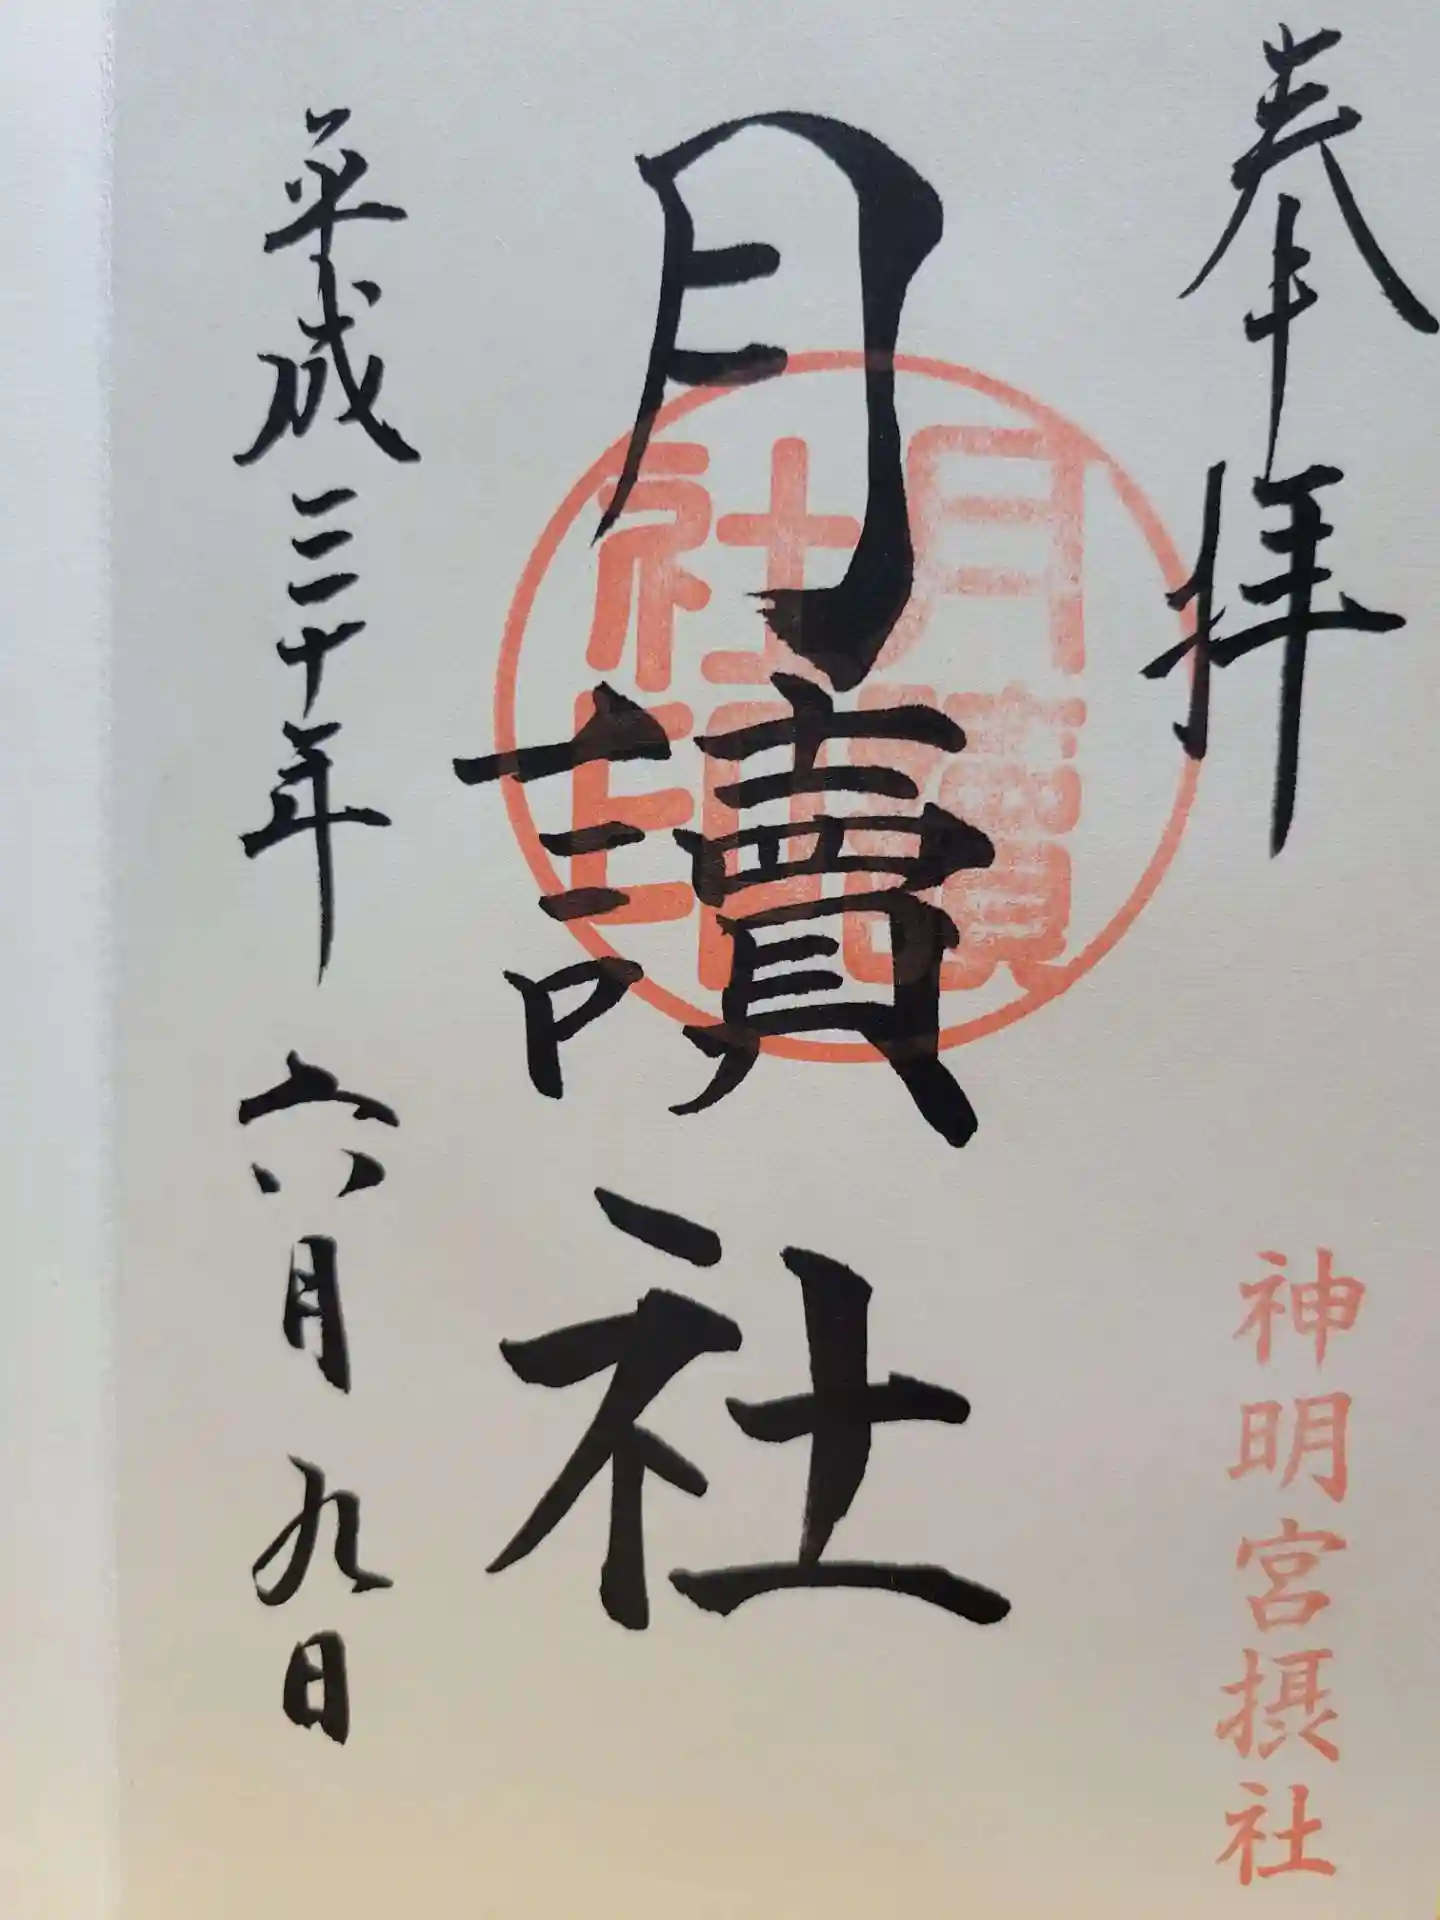 奉拝
神明宮摂社
月讀社
月讀社印
平成三十年 六月 九日